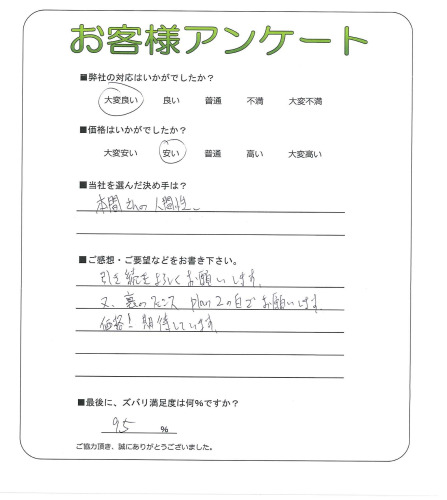 お客様アンケート
■弊社の対応はいかがでしたか？
大変良い 良い 普通 不満 大変不満
■価格はいかがでしたか？
大変安い 安い 普通 高い 大変高い
■当社を選んだ決め手は？
本間さんの人間性。
■ご感想・ご要望などをお書き下さい。
引き続きよろしくお願いします。
又、裏のフェンス plan 2の白でお願いします。
価格！期待しています。
■最後に、ズバリ満足度は何％ですか？
95 ％
ご協力頂き、誠にありがとうございました。